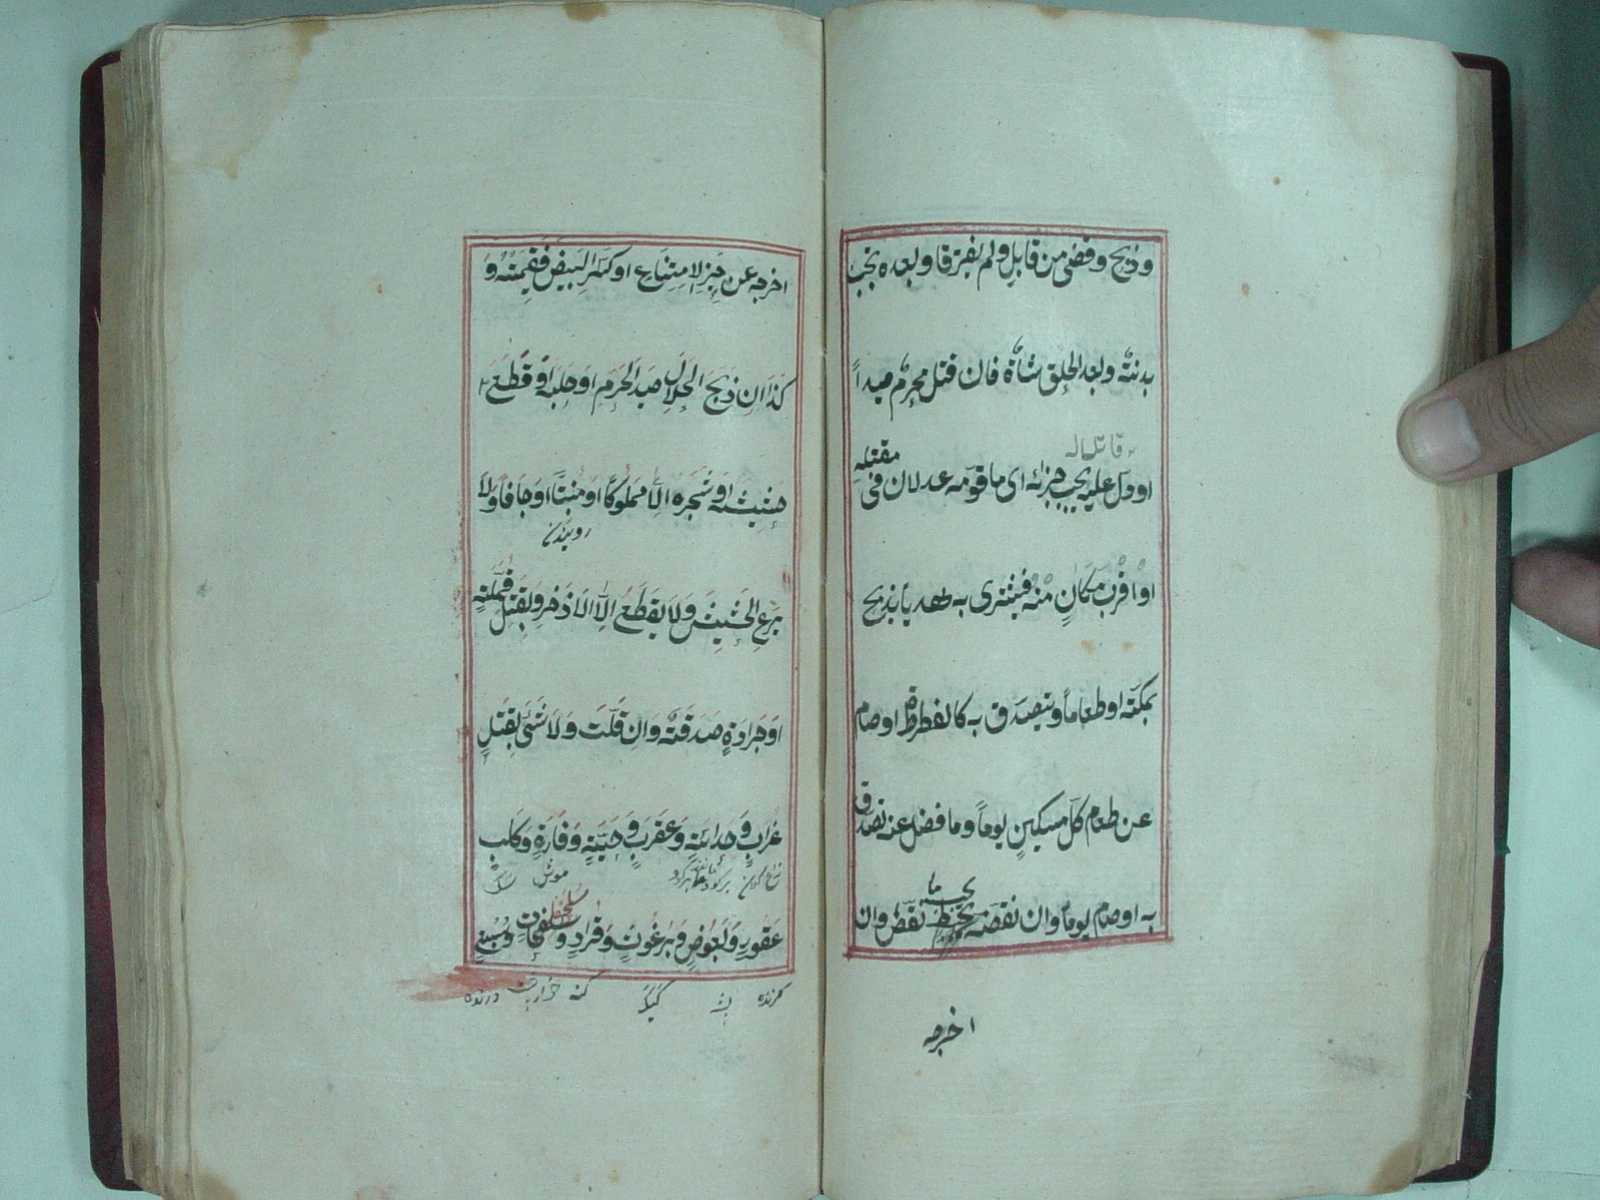 وذبح وقضى من قابل ولم يفترقا وبعده تجب
بدنته وبعد الحلق شاة فان قتل محرم صيداً
قاتله
اودل عليه يجب جزائه اى ما قومه عدلان فى مقتله
او اقرب مكانٍ منه فيشترى به هديا يذبح
بمكته او طعاماً ويتصدق به كالفطرة او صام
عن طعام كل مسكينٍ يوماً وما فضل عنه تصدق
به اوصام يوماً وان نقصه يجب ما نقص وان
اخرجه
اخرجه عن حيز الامتناع او كسر البيض فقيمته و
كذا ان ذبح الحلال صيد الحرم او حلبه او قطع
حشيشه او شجره الا مملوكا او منبتاً او جافاً ولا
رويدن
يرعى الحشيش ولا يقطع الا الاذخر وبقتل قملته
او جرادةٍ صدقته وان قلت ولا شئ بقتل
غراب وحدائته وعقرب وحيته وفارة وكلب
موش سك
عقور وبعوض وبرغوث وقراد وسلحفات وسبع
كزنده پشه كيك كنه درنده